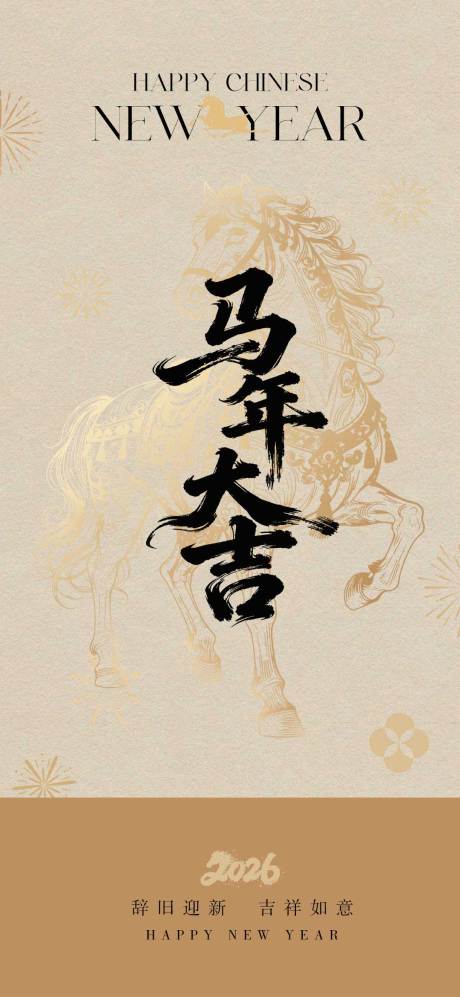 HAPPY CHINESE
NEW YEAR
马年大吉
2026
辞旧迎新 吉祥如意
HAPPY NEW YEAR